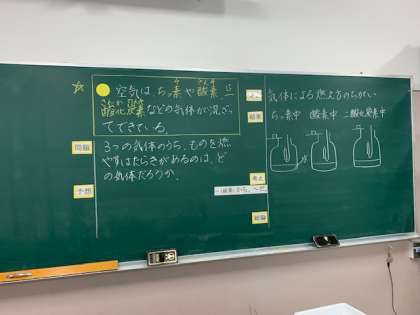 空気は、ちっ素や酸素、二
酸化炭素などの気体が混ざっ
てできている。
問題
3つの気体のうち、ものを燃
やすはたらきがあるのは、ど
の気体だろうか。
予想
結果
気体による燃え方のちがい
ちっ素中 酸素中 二酸化炭素中
水
考え
結論